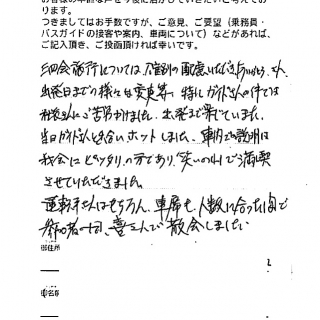 お客様の率直なお声を今後に活かしていきたいと考えてお
ります。
つきましてはお手数ですが、ご意見、ご要望（乗務員・
バスガイドの接客や案内、車両について）などがあれば、
ご記入頂き、ご投函頂ければ幸いです。
旅行については 格別の配慮いただきありがとう
出発日までの様々な変更等、特にガイドさんの件では
さんにご苦労かけました。出発まで
当日ガイドさんと会いホットしました。車内での説明は
我会にピッタリの方であり、笑いの中で満喫
させていただきました。
運転手さんはもちろん、車席も人数に合った
参加者一同、喜こんで散会しました
御住所
御名前